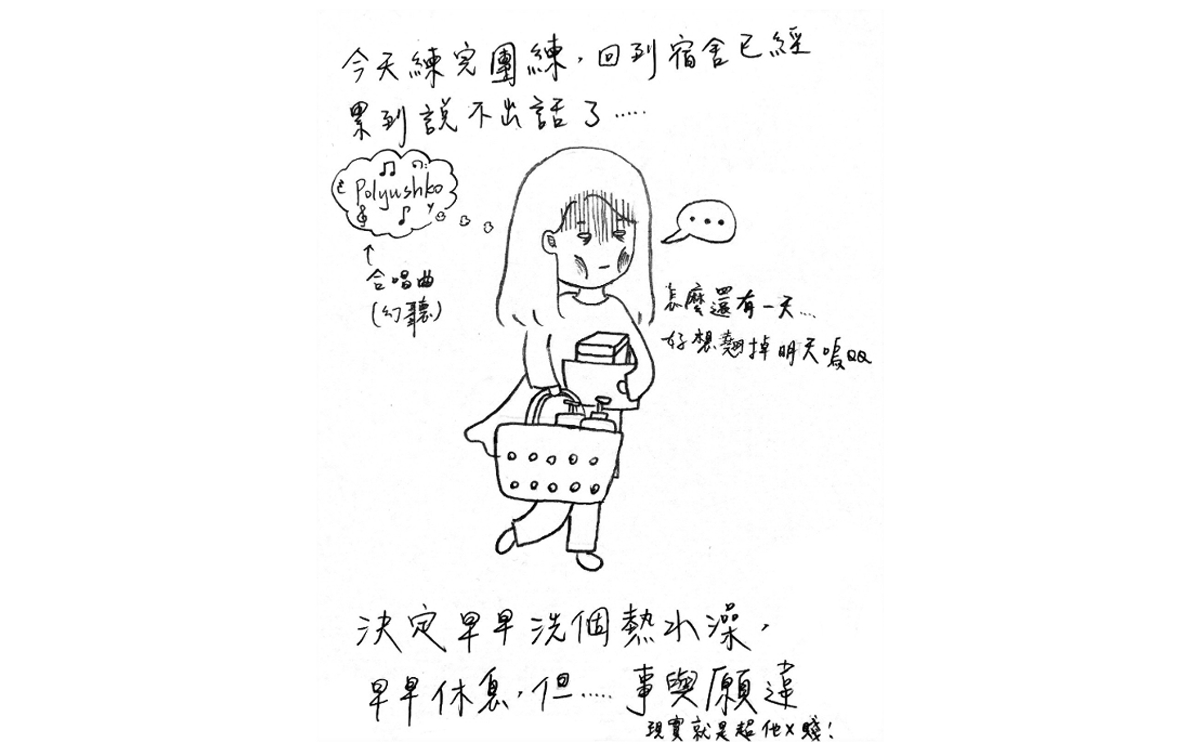 今天練完團練，回到宿舍已經
累到說不出話了.....
Polyushko
↑
合唱曲
(幻聽)
...
怎麼還有一天....
好想翹掉明天嗚QQ
決定早早洗個熱水澡，
早早休息，但.....事與願違
現實就是超他x賤！